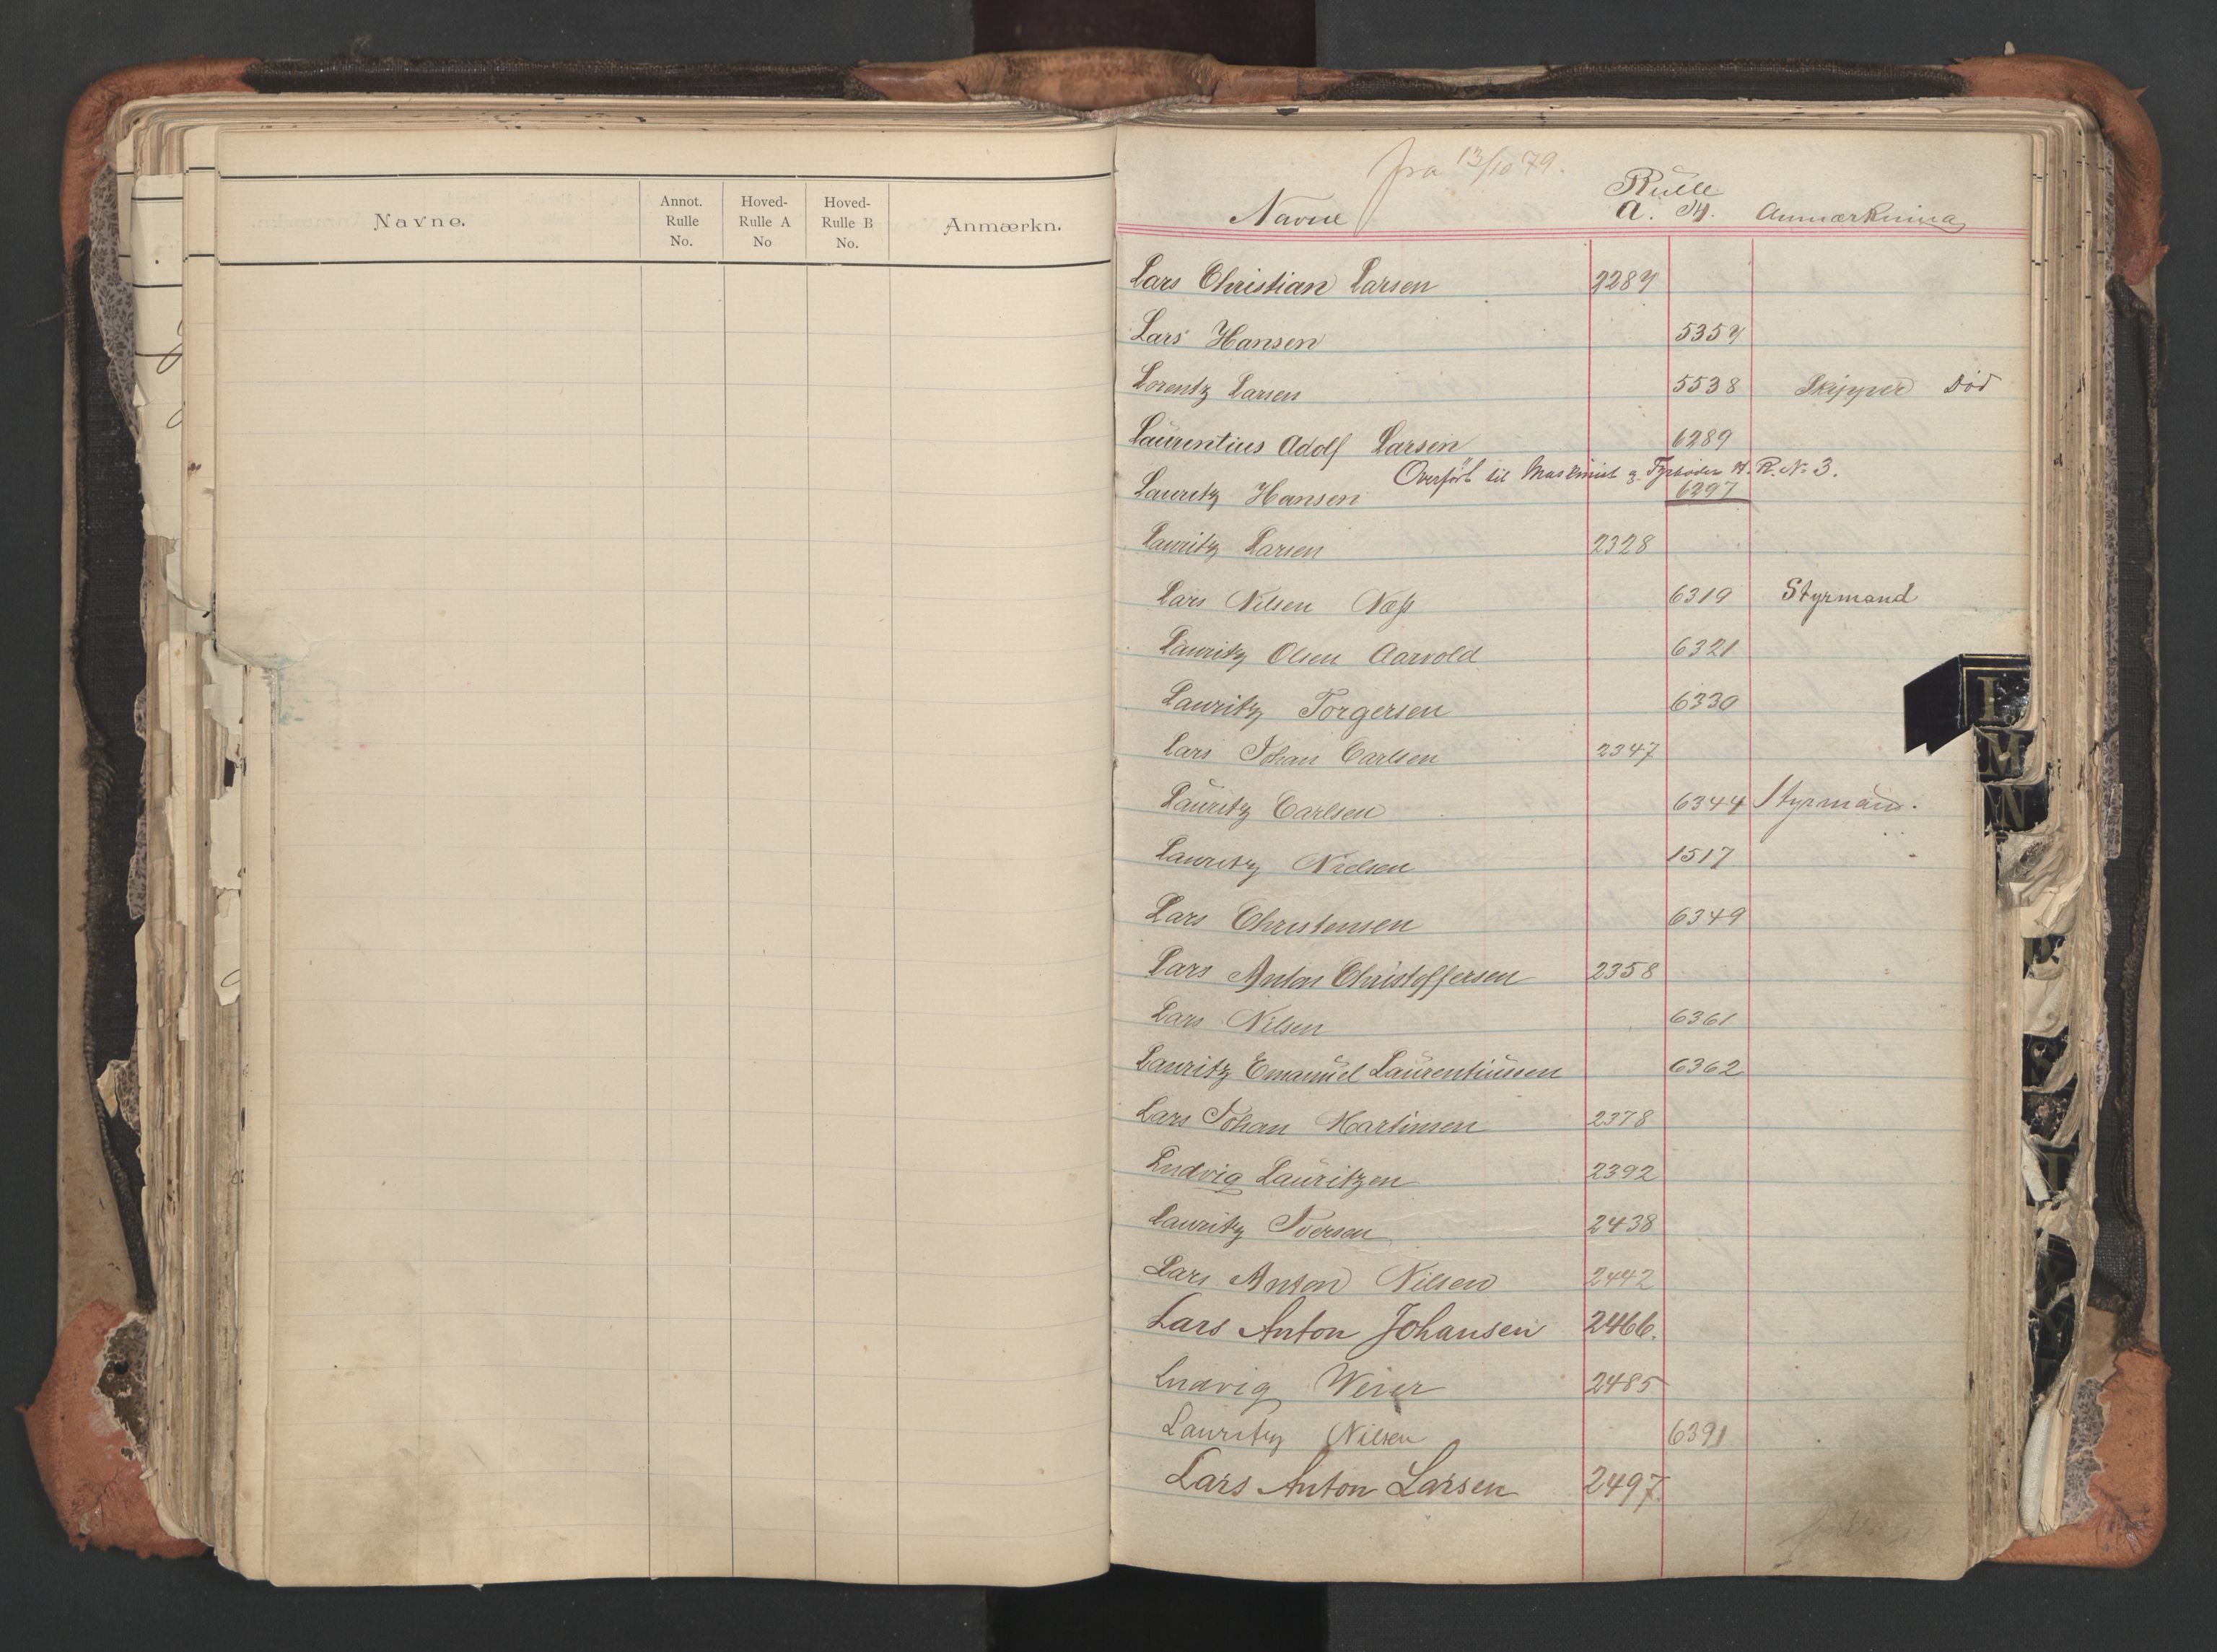 Navne.
Annot. Rulle No.
Hoved- Rulle A No
Hoved- Rulle B No.
Anmærkn.
fra 13/10 79.
Navne Rulle a. H. Anmærkning
Lars Christian Larsen 2287
Lars Hansen 5357
Lorentz Larsen 5538 Skipper Död
Laurentius Adolf Larsen 6289
Overført til Maskinist og Fyrböder H. R. No 3.
Lauritz Hansen 6297
Lauritz Larsen 2328
Lars Nilsen Næss 6319 Styrmand
Lauritz Olsen Aarvold 6321
Lauritz Torgersen 6330
Lars Johan Carlsen 2347
Lauritz Carlsen 6344 Styrmand.
Lauritz Nielsen 1517
Lars Christensen 6349
Lars Anton Christoffersen 2358
Lars Nilsen 6361
Lauritz Emanuel Laurentiussen 6362
Lars Johan Martinsen 2378
Ludvig Lauritzen 2392
Lauritz Iversen 2438
Lars Anton Nilsen 2442
Lars Anton Johansen 2466.
Ludvig Weier 2485
Lauritz Nilsen 6391
Lars Anton Larsen 2497.
L
M
N